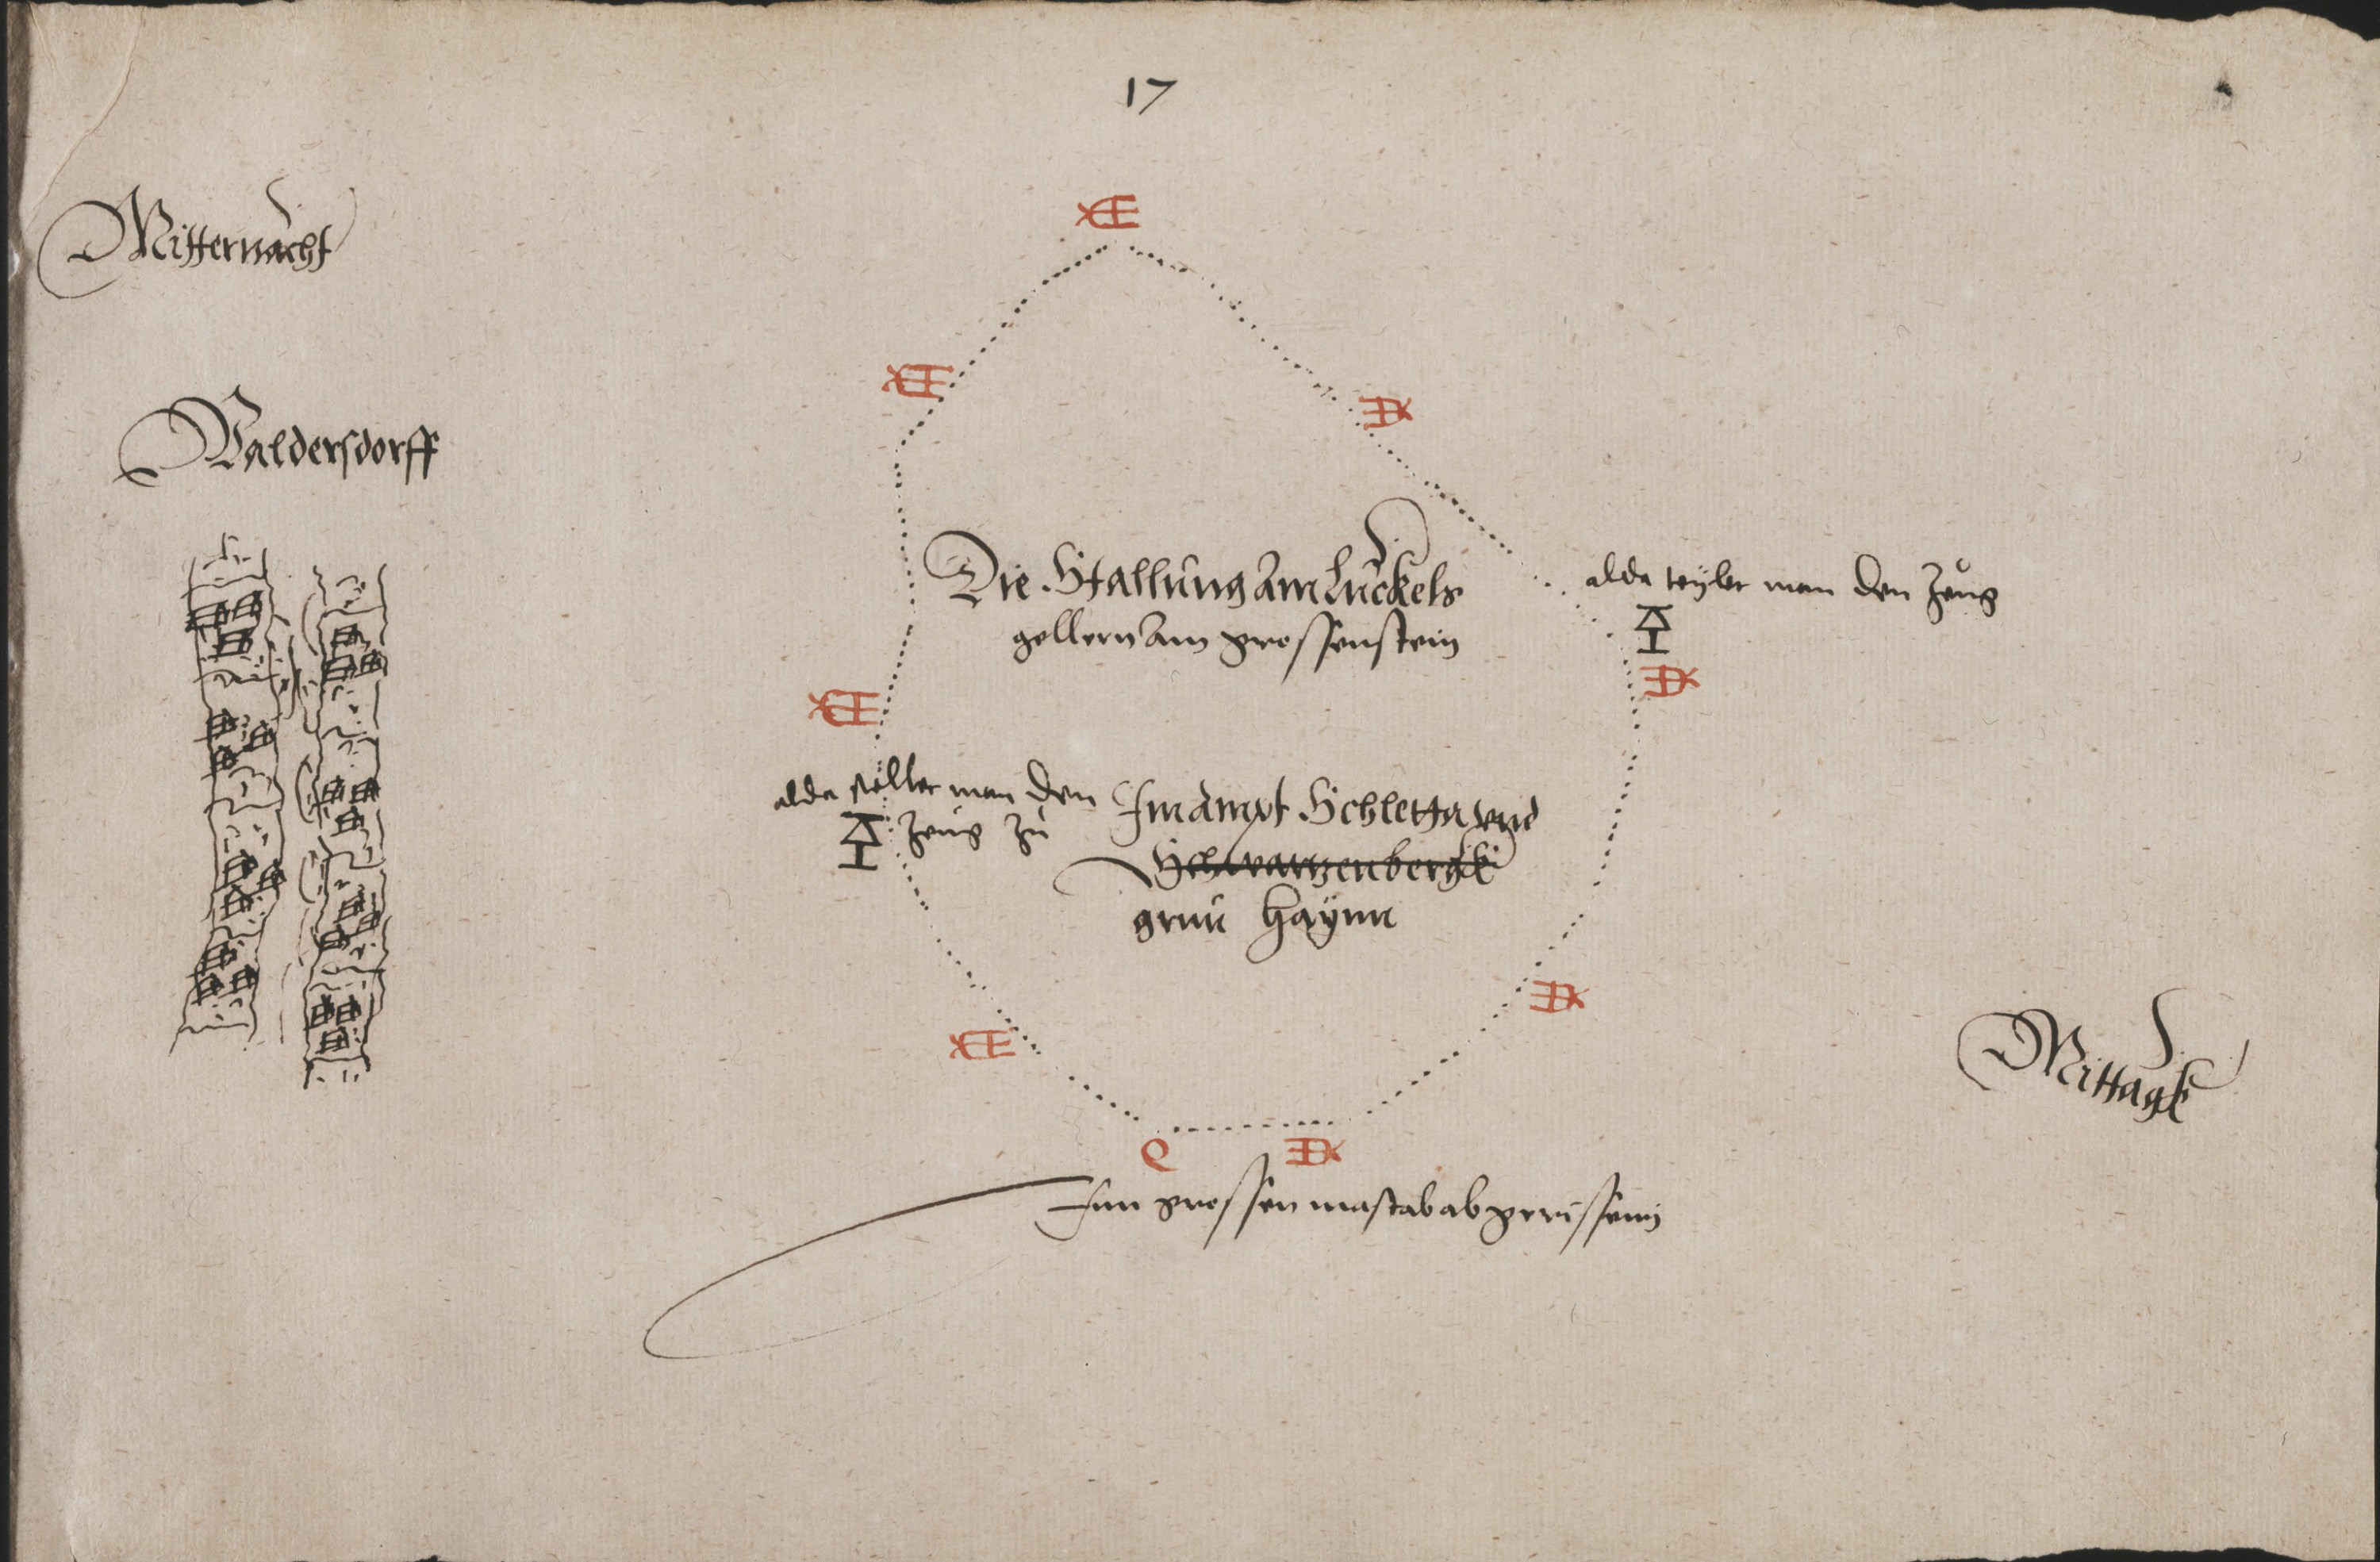 17
Mitternacht
Waldersdorff
Die Stallung Am Luckels
gellern Am grossenstein
alda teylet man den Zeug
alda stellet man den
Zeug zu
Im ampt Schletta vnd
Schwartzenbergk
grun Haÿnn
Mittagk
Inn grossen mastab abgerissenn